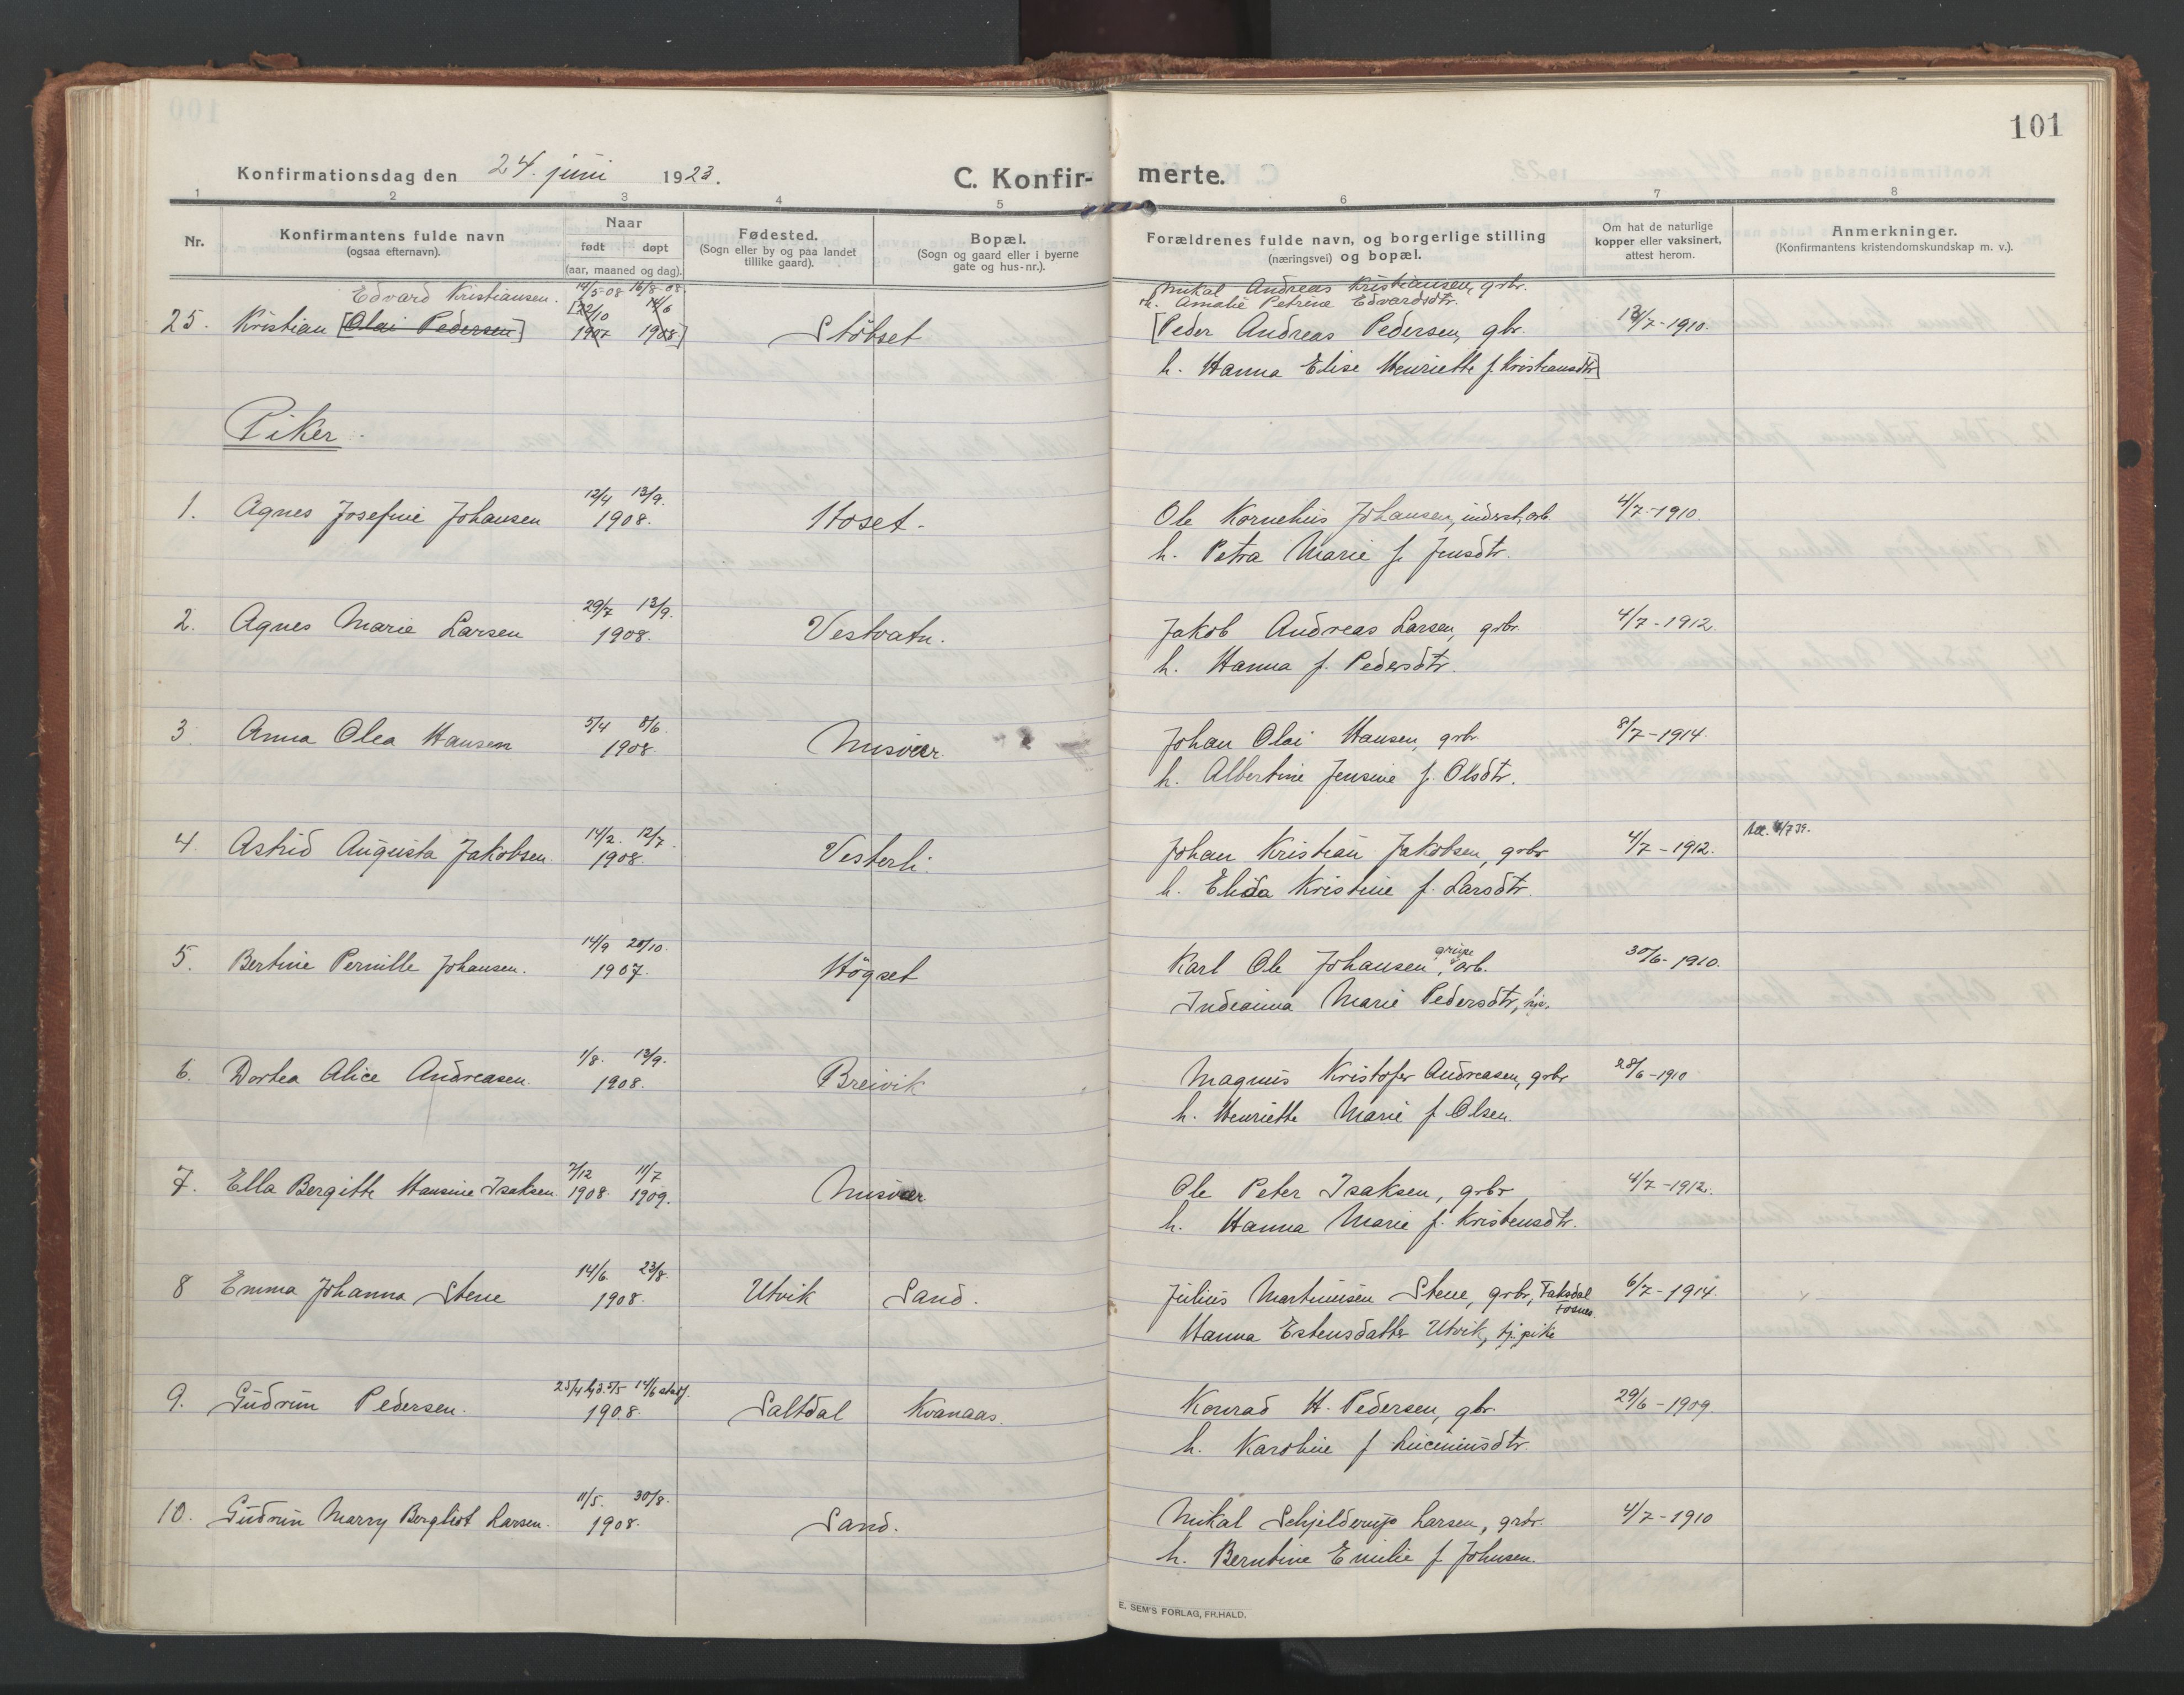 101
Konfirmationsdag den 24. juni 1923.
C. Konfir- merte.
1 2 3 4 5 6 7 8
Nr.
Konfirmantens fulde navn
(ogsaa efternavn).
Naar
født døpt
(aar, maaned og dag).
Fødested.
(Sogn eller by og paa landet
tillike gaard).
Bopæl.
(Sogn og gaard eller i byerne
gate og hus-nr.).
Forældrenes fulde navn, og borgerlige stilling
(næringsvei) og bopæl.
Om hat de naturlige
kopper eller vaksinert,
attest herom.
Anmerkninger.
(Konfirmantens kristendomskundskap m. v.).
Edvard Kristiansen. 14/5-08 16/8-08 Mikal Andreas Kristiansen, grbr.
[22/10 14/6 h. Amalie Petrine Edvardsdtr.
25. Kristian [Olai Pedersen] 1907 1908] Støbset [Peder Andreas Pedersen, gbr. 13/7-1910.
h. Hanna Elise Henriette f. Kristiansdtr]
Piker
12/4 13/9.
1. Agnes Josefine Johansen 1908. Hoset. Ole Kornelius Johansen, inderst, arb. 4/7-1910.
h. Petra Marie f. Jensdtr.
29/7 13/9.
2. Agnes Marie Larsen 1908. Vestvatn. Jakob Andreas Larsen, grbr. 4/7-1912.
h. Hanna f. Pedersdtr.
5/4 8/6.
3. Anna Olea Hansen 1908. Misvær. Johan Olai Hansen, grbr. 8/7-1914.
h. Albertine Jensine f. Olsdtr.
14/2. 12/7.
4. Astrid Augusta Jakobsen 1908. Vesterli. Johan Kristian Jakobsen, grbr. 4/7-1912.
h. Elida Kristine f. Larsdtr.
14/9 20/10.
5. Bertine Pernille Johansen. 1907. Høgset Karl Ole Johansen, grube arb. 30/6-1910.
Indianna Marie Pedersdtr,
1/8. 13/9.
6. Dortea Alice Andreasen. 1908. Breivik Magnus Kristofer Andreasen, grbr. 28/6-1910
h. Henriette Marie f. Olsen.
7/12 11/7
7. Ella Bergitte Hansine Isaksen 1908. 1909. Misvær Ole Peter Isaksen, grbr. 4/7-1912.
h. Hanna Marie f. Kristensdtr.
14/6 23/8.
8 Emma Johanna Stene 1908. Utvik Sand. Julius Martinusen Stene, grbr, Faksdal Fosnes. 6/7-1914.
Hanna Estensdatter Utvik, tj. pike
25/4 hjd. 5/5 14/6 stadf.
9. Gudrun Pedersen. 1908. Saltdal Kvanaas. Konrad H. Pedersen, gbr. 29/6-1909.
h. Karoline f Luciniusdtr.
11/5. 30/8.
10. Gudrun Marry Bergliot Larsen. 1908. Sand. Mikal Schjelderup Larsen, grbr. 4/7-1910
h. Berntine Emilie f. Johnsen.
E. SEM'S FORLAG, FR.HALD.